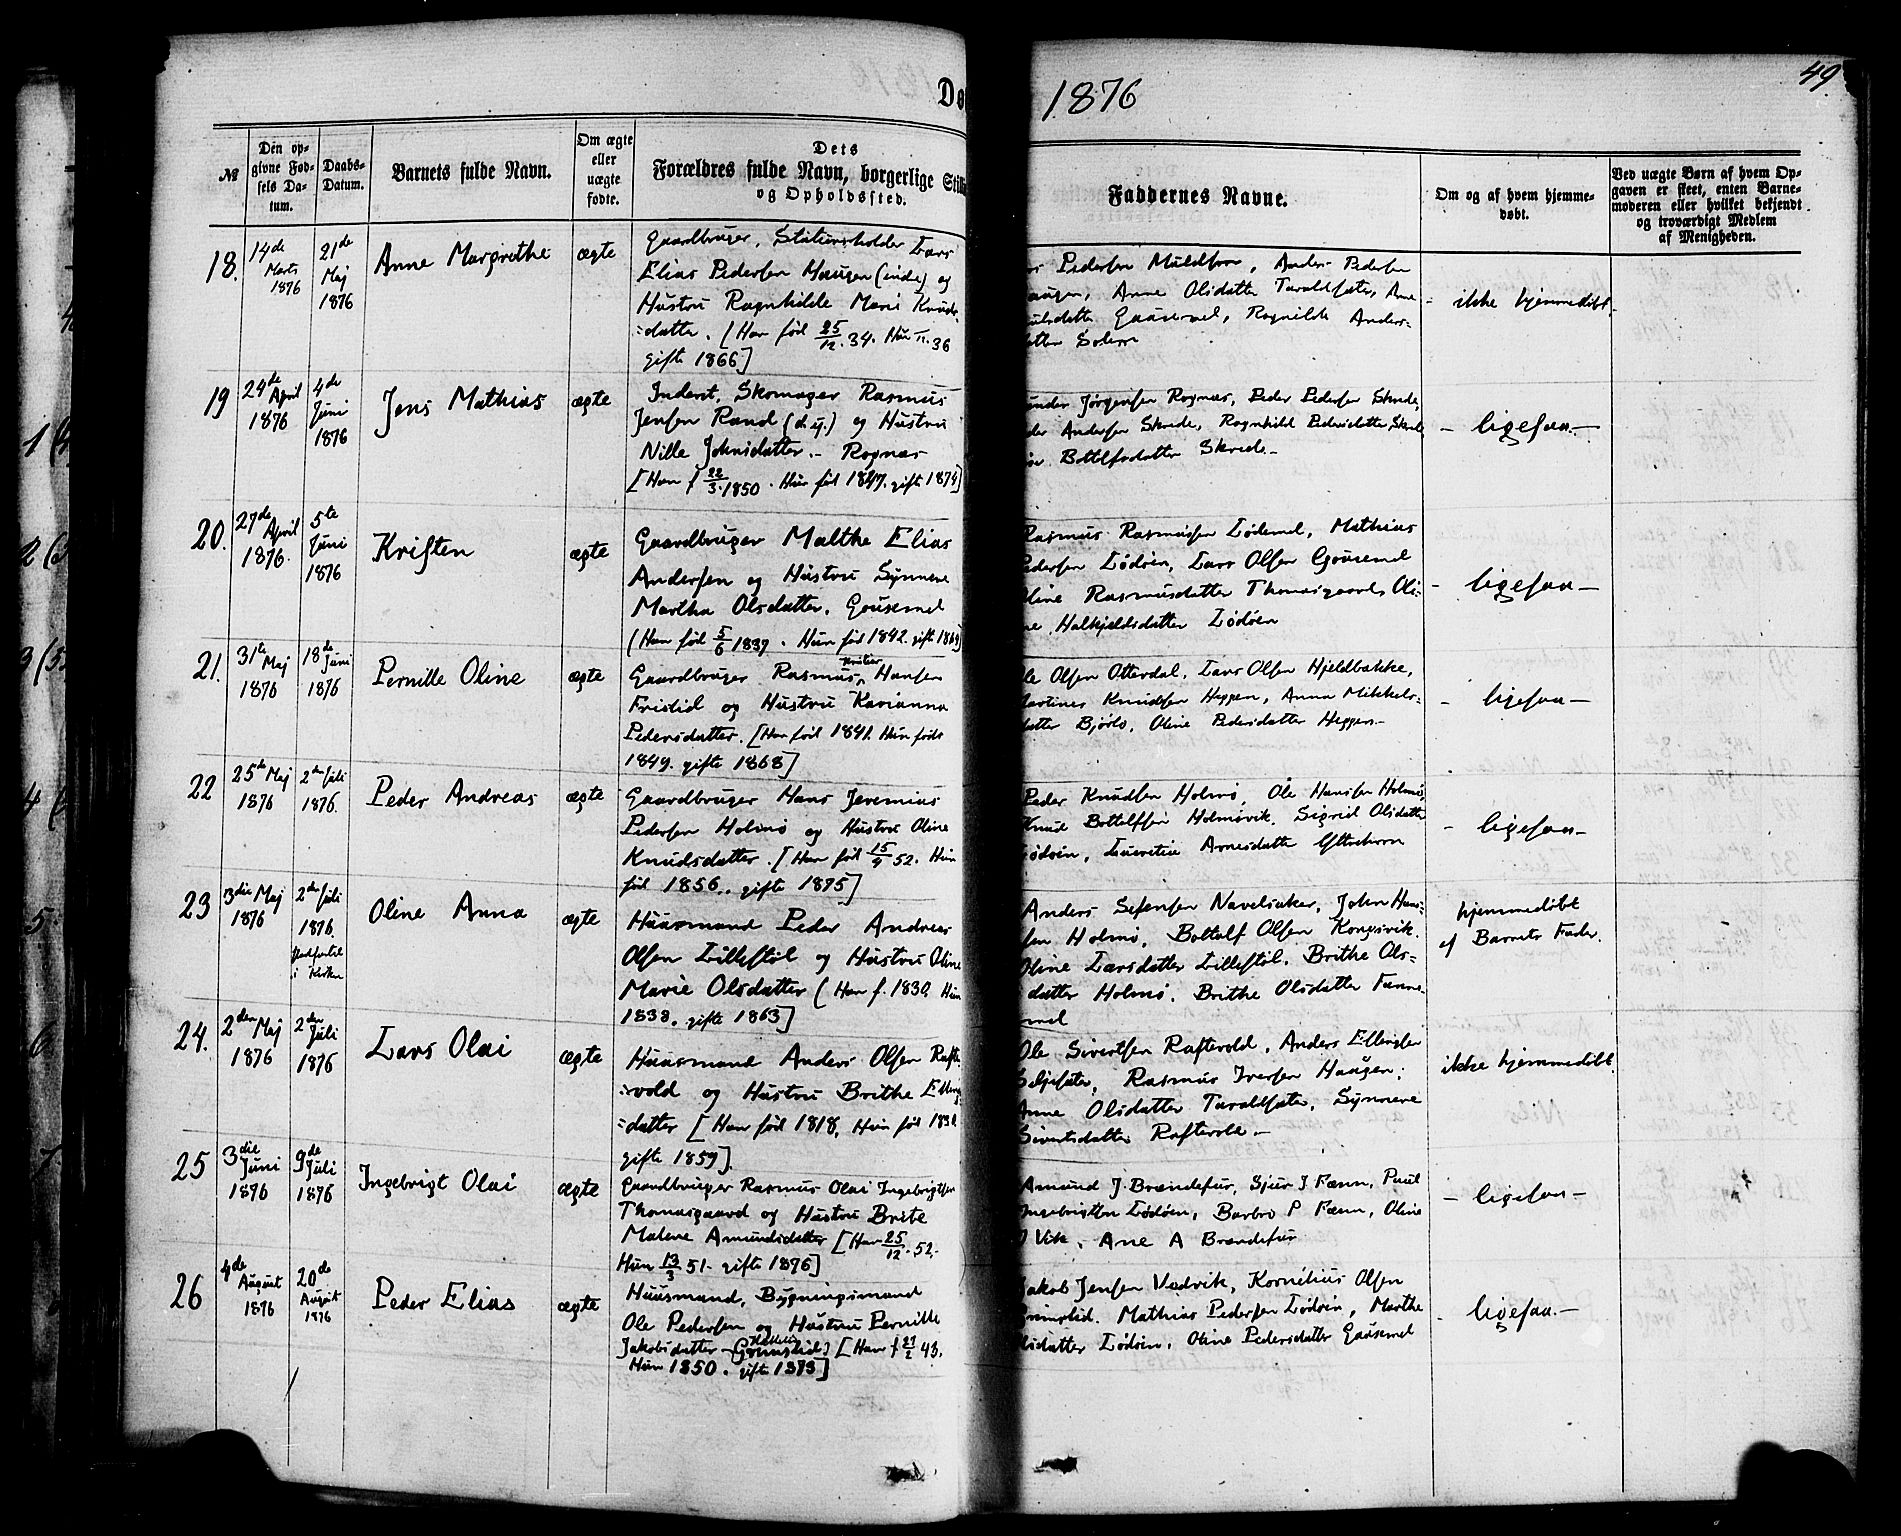 49
Dø
1876
№
Den opgivne Fødsels Datum.
Daabs-Datum.
Barnets fulde Navn.
Om ægte eller uægte fødte.
Dets Forældres fulde Navn, borgerlige Still
og Opholdssted.
Faddernes Navne.
Om og af hvem hjemmedøbt.
Ved uægte Børn af hvem Op-
gaven er skeet, enten Barne-
moderen eller hvilket bekjendt
og troværdigt Medlem
af Menigheden.
18.
14de Marts 1876
21de Maj 1876
Anne Margrethe
ægte
Gaardbruger, Stationsholder Lars
Elias Pedersen Haugen (inde) og
Hustru Ragnhilde Marie Knuds-
=datter. [Han født 25/12.34. Hun 36
gifte 1866]
Pedersen Muldsvor, Anders Pedersen
augen, Anne Olsdatter Taraldsæter, Anne
datter Gausemel, Ragnilde Anders-
atter Solem
- ikke hjemmedøbt.
19
24de April 1876
4de Juni 1876
Jens Mathias
ægte
Inderst, Skomager Rasmus
Jensen Rand (d.y.) og Hustru
Nille Johnsdatter. - Rognæs
[Han f 22/3.1850. Hun fød 1847. gifte 1874]
under Jørgensen Rognæs, Peder Pedersen Skrede,
der Andersen Skrede, Ragnhild Pedersdatter Skrede
Bottolfsdatter Skrede -
- ligesaa -
20.
27de April 1876.
5te Juni 1876
Kristen
ægte
Gaardbruger Malthe Elias
Andersen og Hustru Synneve
Martha Olsdatter, Gausemel
(Han fød 5/6 1839. Hun fød 1842. gift 1869)
Rasmus Rasmusen Lødemel, Mathias
Pedersen Lødøen, Lars Olsen Gousemel
Oline Rasmusdatter Thomasgaard, Oli-
ne Halkjeldsdatter Lødøen
- ligesaa -
21.
31te Maj 1876
18de Juni 1876
Pernille Oline
ægte
Gaardbruger Rasmus Hansen
Fristid og Hustru Karianna
Pedersdatter. [Han fød 1841. Hun føde
1849. gifte 1868]
Ole Olsen Otterdal, Lars Olsen Hjeldbakke,
Martines Knudsen Heggen, Anna Mikkels-
datter Bjørlo, Oline Pedersdatter Heggen -
- ligesaa -
22
25de Maj 1876
2den Juli 1876.
Peder Andreas
ægte
Gaardbruger Hans Jeremias
Pedersen Holmø og Hustru Oline
Knudsdatter. [Han fød 15/9 52. Hun
fød 1856. gifte 1875]
Peder Knudsen Holmø, Ole Hansen Holmø,
Knud Bottolfsen Holmøvik. Sigrid Olsdatter
Lødøen, Lucretie Arnesdatter Yttrehorn
- ligesaa -
23
3die Maj 1876
2den Juli 1876.
i Kirken
Oline Anna
ægte
Huusmand Peder Andreas
Olsen Lillestøl og Hustru Oline
Marie Olsdatter (Han f. 1830. Hun
1838. gifte 1863]
Anders Sefensen Navelsaker, John Han-
sen Holmø, Bottolf Olsen Kongsvik.
Oline Larsdatter Lillestøl, Brithe Ols-
datter Holmø. Brithe Olsdatter Fanne-
mel
hjemmedøbt
af Barnets Fader.
24.
2den Maj 1876
2den Juli 1876
Lars Olai
ægte
Huusmand Anders Olsen Rafte
=vold og Hustru Brithe Elling
=datter [Han fød 1818, Hun fød 183
gifte 1859].
Ole Sivertsen Raftevold, Anders Ellingsen
Seljesæter, Rasmus Iversen Haugen;
Anne Olsdatter Taraldsæter, Synneve
Sivertsdatter Raftevold -
ikke hjemmedøbt.
25
3die Juni 1876
9de Juli 1876
Ingebrigt Olai
ægte
Gaardbruger Rasmus Olai Ingebrigtsen
Thomasgaard og Hustru Brite
Malene Amundsdatter [Han 25/12.52.
Hun 13/3 51. gifte 1876]
Amund J. Brændefur, Sjur J Fænn, Paul
Ingebrigtsen Lødøen, Barbro P Fænn, Oline
J Vik, Ane A Brændefur
- ligesaa -
26
4de August 1876
20de August 1876
Peder Elias
ægte
Huusmand, Bygningsmand
Ole Pedersen og Hustru Pernille
Jakobsdatter Grimstid [Han f 27/2 43,
Hun 1850. gifte 1873]
Jakob Jensen Vedvik, Kornelius Olsen
Grimstid. Mathias Pedersen Lødøen, Marthe
Olsdatter Lødøen, Oline Pedersdatter Gausemel
- ligesaa. -